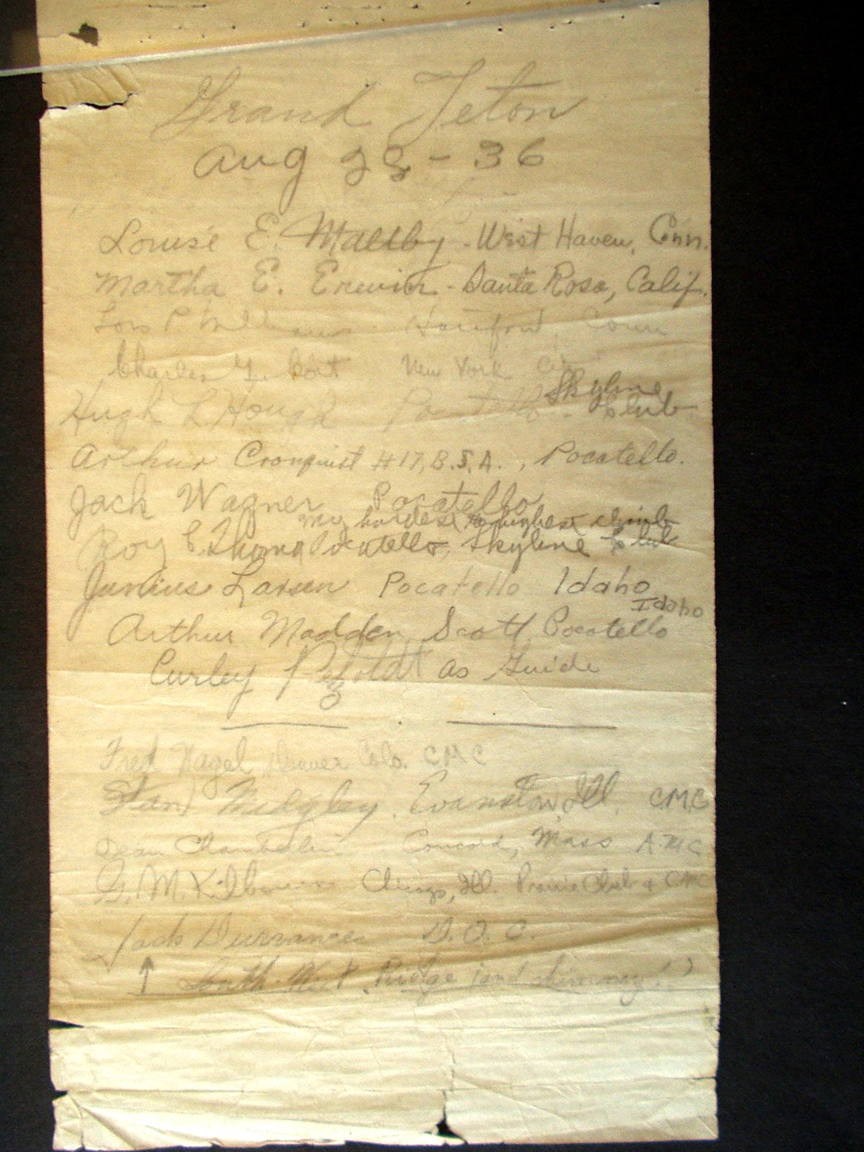 Grand Teton
Aug 28 - 36
Louise E. Maltby - West Haven, Conn.
Martha E. - Santa Rosa, Calif.
Lois P Williams Hartford, Conn
Charles New York City
Hugh L Hough Pocatello Skyline Club
Arthur Cronquist #17, B.S.A., Pocatello.
Jack Wagner Pocatello
my hardest & highest climb
Roy C. Pocatello, Skyline Club
Junius Larsen Pocatello Idaho
Arthur Madden Scott Pocatello Idaho
Curley Petzoldt as Guide
Fred Nagel Denver Colo. CMC
Stan Midgley. Evanston, Ill. C.M.C
Dean Chamberlin Concord, Mass A.M.C
G. M. Kilbourne Chicago, Ill. Prairie Club & CMC
Jack Durrance D.O.C.
↑ South West Ridge (and chimney!!)